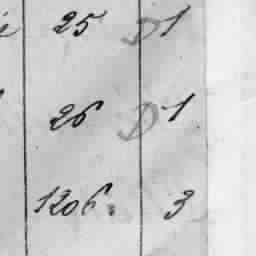 25 D 1
26 D 1
1206. 3